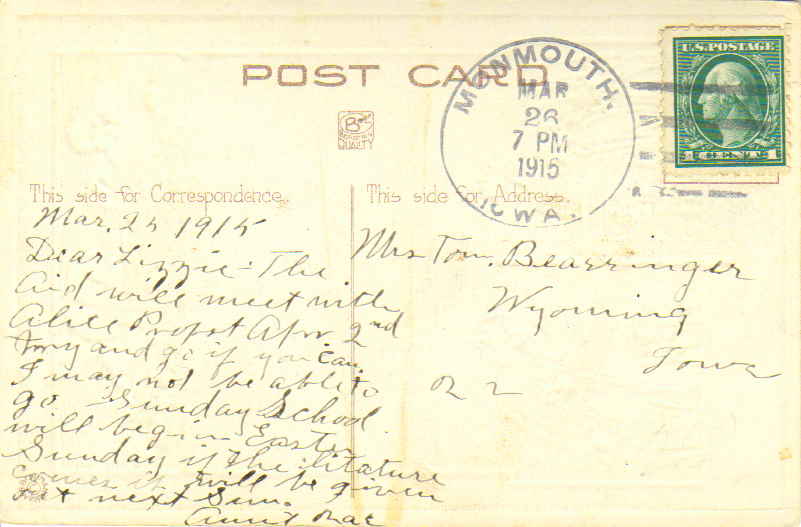 POST CARD
MONMOUTH.
MAR
26
7 PM
1915
IOWA.
U.S. POSTAGE
QUALITY
This side for Correspondence.
This side for Address.
Mar. 25 1915
Dear Lizzie - The
Aid will meet with
Alice Propst Apr. 2nd
Try and go if you can.
I may not be able to
go Sunday School
will begin Easter
Sunday if the litature
comes it will be given
out next Sun.
Aunt Mae
Mrs Tom. Bearringer
Wyoming
Iowa
R 2